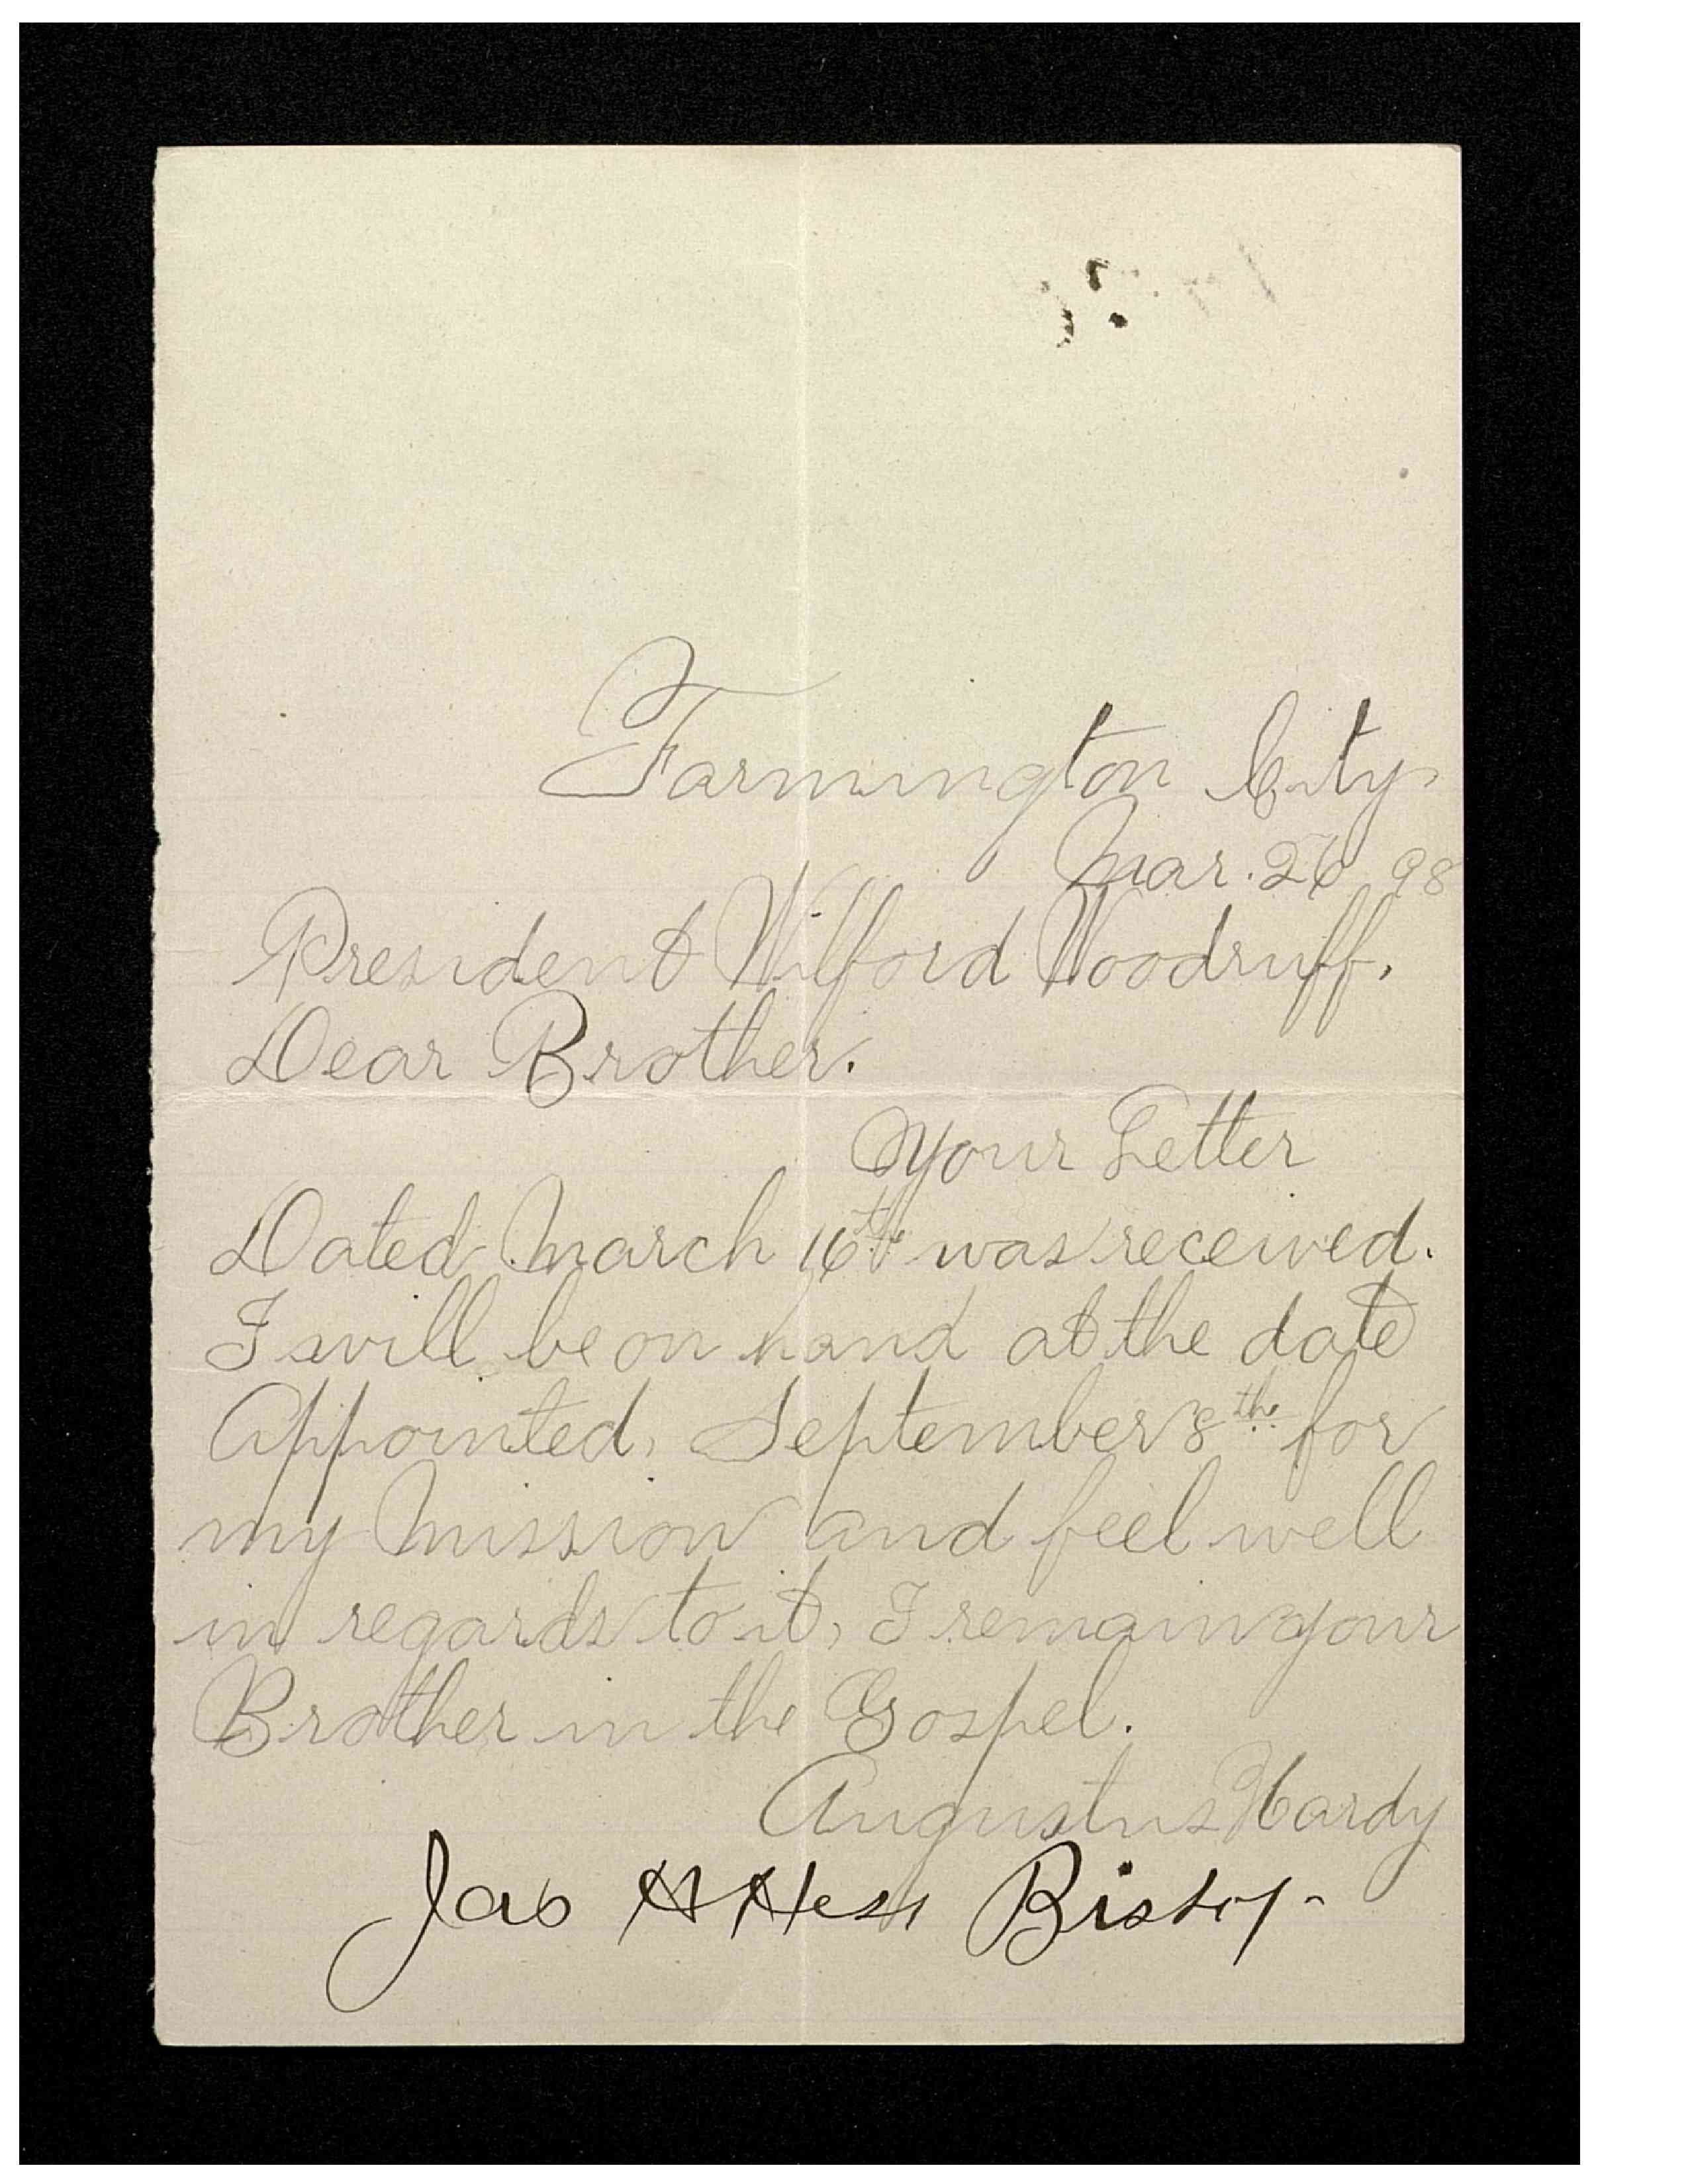 Farmington City.
Mar. 26 98
President Wilford Woodruff.
Dear Brother.
Your Letter
Dated March 16th was received.
I will be on hand at the date
Appointed, September 8th for
my Mission and feel well
in regards to it, I remain your
Brother in the Gospel.
Augustus Hardy
Jas H Hess Bishop